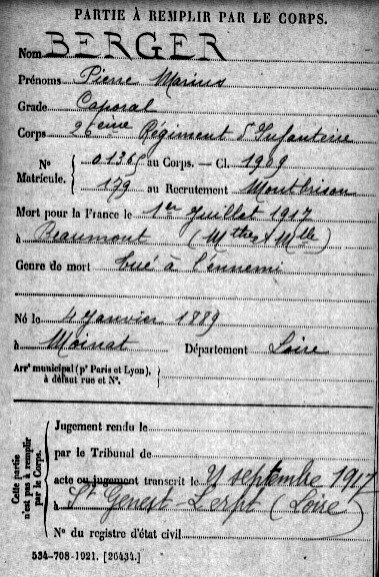 PARTIE À REMPLIR PAR LE CORPS.
Nom BERGER
Prénoms Pierre Marius
Grade Caporal
Corps 26ème Régiment d'Infanterie
N° Matricule. { 01365 au Corps. — Cl. 1909
179 au Recrutement Montbrison
Mort pour la France le 1er Juillet 1917
à Beaumont (Mthe & Mlle)
Genre de mort tué à l'ennemi
Né le 4 Janvier 1889
à Moinat Département Loire
Arrt municipal (pr Paris et Lyon), à défaut rue et N°.
Cette partie n'est pas à remplir par le Corps.
Jugement rendu le
par le Tribunal de
acte ou jugement transcrit le 21 septembre 1917
à St Genest Lerpt (Loire)
N° du registre d'état civil
534-708-1921. [26434.]